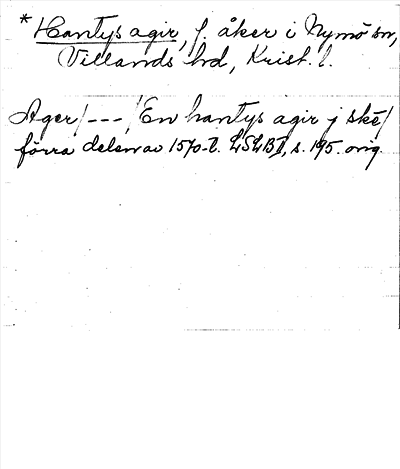 * Hantys agir, f. åker i Nymö sn,
Villands hd, Krist. l.
Ager /---/ En hantys agir j skē/
förra delen av 1570-t. LSLB I, s. 195. orig.